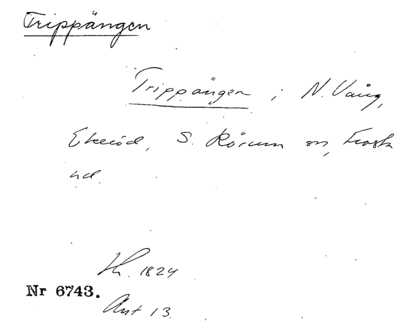 Trippängen
Trippängen i N. Vång,
Ekeröd, S. Rörum sn, Frosta
hd.
Lh. 1824
Nr 6743.
Ant 13